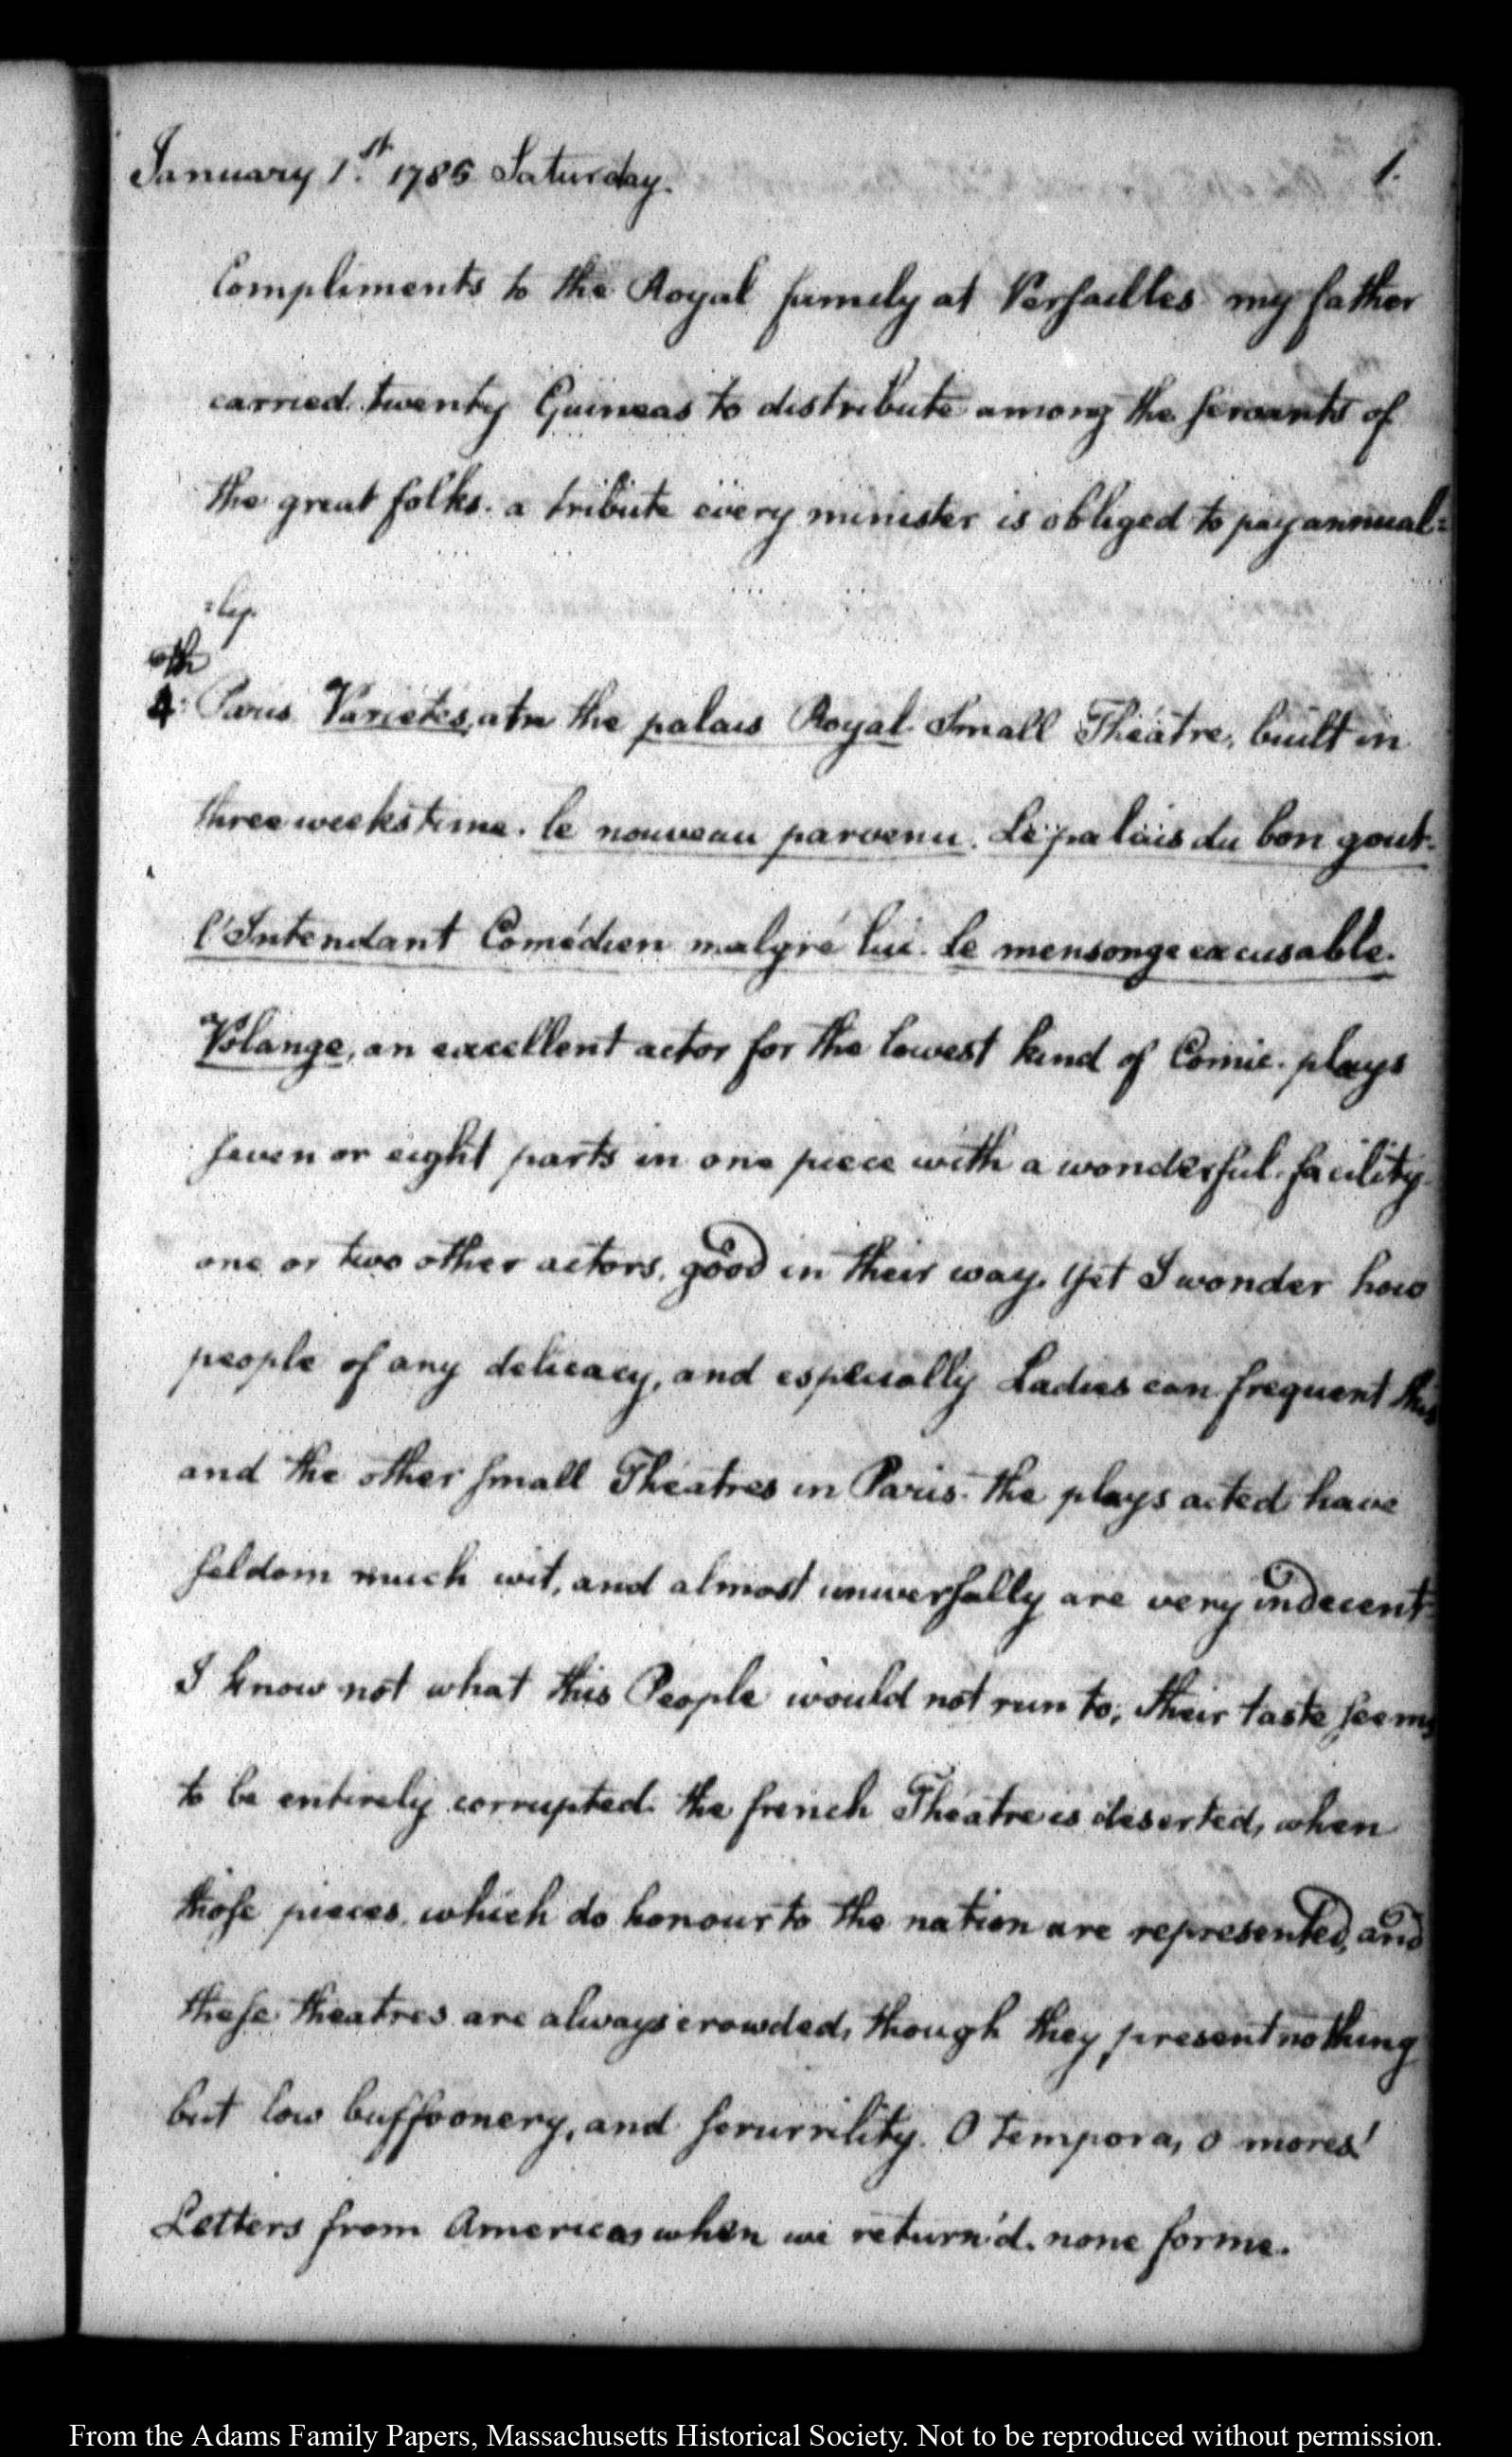 January 1.st 1785 Saturday.
1.
Compliments to the Royal family at Versailles my father
carried twenty Guineas to distribute among the servants of
the great folks. a tribute every minister is obliged to pay annual=
=ly.
4th Paris Varietés, at the palais Royal. Small Théatre, built in
three weeks time. le nouveau parvenu. Le palais du bon gout.
l'Intendant Comédien malgré lui. le mensonge excusable.
Volange, an excellent actor for the lowest kind of Comic. plays
seven or eight parts in one piece with a wonderful facility.
one or two other actors, good in their way. Yet I wonder how
people of any delicacy, and especially Ladies can frequent this
and the other small Théatres in Paris. the plays acted have
seldom much wit, and almost universally are very indecent.
I know not what this People would not run to; their taste seems
to be entirely corrupted. the french Theatre is deserted, when
those pieces which do honour to the nation are represented, and
these theatres are always crowded, though they present nothing
but low buffoonery, and scurrility. O tempora, o mores!
Letters from America, when we return'd. none for me.
From the Adams Family Papers, Massachusetts Historical Society. Not to be reproduced without permission.